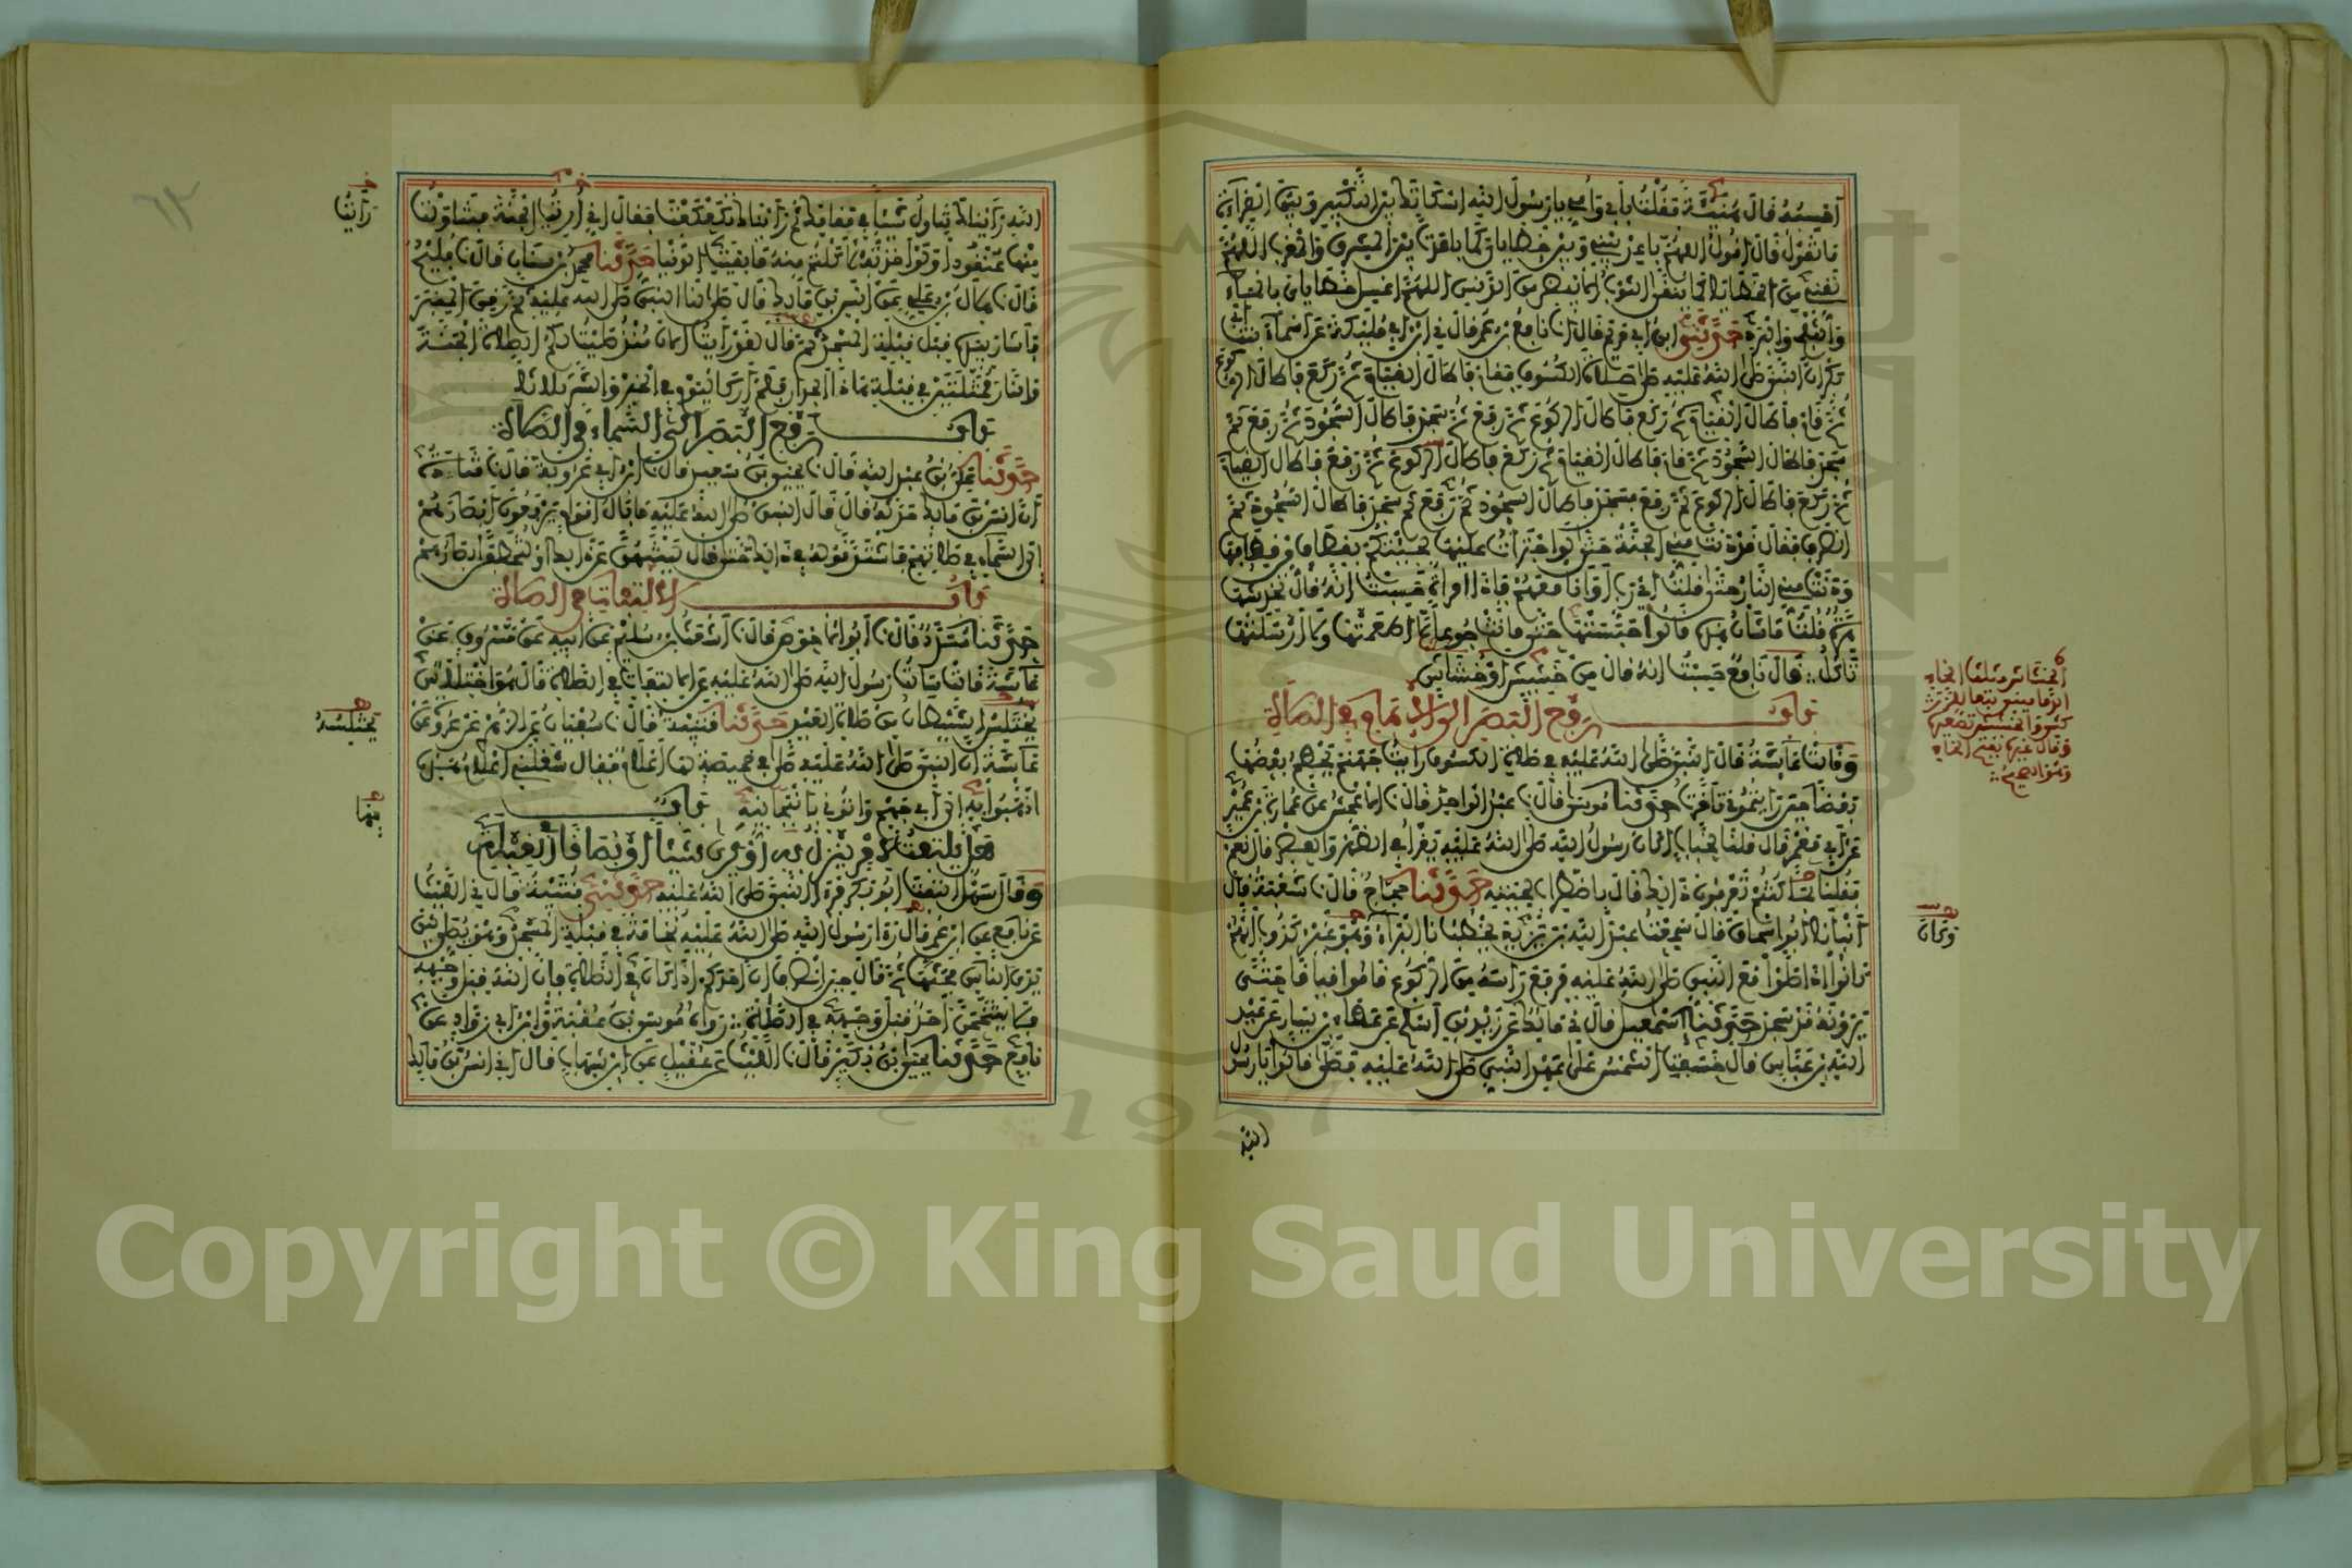 أحسبه قال هنية فقلت بأبي وأمي يا رسول الله إسكاتك بين التكبير وبين القراءة
ما تقول قال أقول اللهم باعد بيني وبين خطاياي كما باعدت بين المشرق والمغرب اللهم
نقني من الخطايا كما ينقى الثوب الأبيض من الدنس اللهم اغسل خطاياي بالماء
والثلج والبرد حدثني ابن أبي مريم قال انا نافع بن عمر قال ني ابن أبي مليكة عن أسماء بنت أبي
بكر أن النبي صلى الله عليه صلى صلاة الكسوف فقام فأطال القيام ثم ركع فأطال الركوع
ثم قام فأطال القيام ثم ركع فأطال الركوع ثم رفع ثم سجد فأطال السجود ثم رفع ثم
سجد فأطال السجود ثم قام فأطال القيام ثم ركع فأطال الركوع ثم رفع فأطال القيام
ثم ركع فأطال الركوع ثم رفع فسجد فأطال السجود ثم رفع ثم سجد فأطال السجود ثم
انصرف فقال قد دنت مني الجنة حتى لو اجترأت عليها لجئتكم بقطاف من قطافها
ودنت مني النار حتى قلت أي رب أو أنا معهم فإذا امرأة حسبت أنه قال تخدشها
هرة قلت ما شأن هذه قالوا حبستها حتى ماتت جوعا لا أطعمتها ولا أرسلتها
تأكل قال نافع حسبت أنه قال من خشيش أو خشاش
باب رفع البصر إلى الإمام في الصلاة
وقالت عائشة قال النبي صلى الله عليه في صلاة الكسوف رأيت جهنم يحطم بعضها
بعضا حين رأيتموني تأخرت حدثنا موسى قال نا عبد الواحد قال نا الأعمش عن عمارة بن عمير
عن أبي معمر قال قلنا لخباب أكان رسول الله صلى الله عليه يقرأ في الظهر والعصر قال نعم
فقلنا بم كنتم تعرفون ذاك قال باضطراب لحيته حدثنا حجاج قال نا شعبة قال
أنبأنا أبو إسحاق قال سمعت عبد الله بن يزيد يخطب نا البراء وهو غير كذوب أنهم
كانوا إذا صلوا مع النبي صلى الله عليه فرفع رأسه من الركوع قاموا قياما حتى
يرونه قد سجد حدثنا إسمعيل قال ني مالك عن زيد بن أسلم عن عطاء بن يسار عن عبد
الله بن عباس قال خسفت الشمس على عهد النبي صلى الله عليه فصلى قالوا يا رسول
الله
الخشاش مثلث الخاء
وقال غيره بفتح الخاء
وكان
الله رأيناك تناول شيئا في مقامك ثم رأيناك تكعكعت فقال إني أريت الجنة فتناولت
منها عنقودا ولو أخذته لأكلتم منه ما بقيت الدنيا حدثنا محمد بن سنان قال نا فليح
قال نا هلال بن علي عن أنس بن مالك قال صلى لنا النبي صلى الله عليه ثم رقي المنبر
فأشار بيده قبل قبلة المسجد ثم قال لقد رأيت الآن منذ صليت لكم الصلاة الجنة
والنار ممثلتين في قبلة هذا الجدار فلم أر كاليوم في الخير والشر ثلاثا
باب رفع البصر إلى السماء في الصلاة
حدثنا علي بن عبد الله قال نا يحيى بن سعيد قال نا ابن أبي عروبة قال نا قتادة
أن أنس بن مالك حدثه قال قال النبي صلى الله عليه ما بال أقوام يرفعون أبصارهم
إلى السماء في صلاتهم فاشتد قوله في ذلك حتى قال لينتهن عن ذلك أو لتخطفن أبصارهم
باب الالتفات في الصلاة
حدثنا مسدد قال نا أبو الأحوص قال نا أشعث بن سليم عن أبيه عن مسروق عن
عائشة قالت سألت رسول الله صلى الله عليه عن الالتفات في الصلاة قال هو اختلاس
يختلس الشيطان من صلاة العبد حدثنا قتيبة قال نا سفيان عن الزهري عن عروة عن
عائشة أن النبي صلى الله عليه صلى في خميصة لها أعلام فقال شغلني أعلام هذه
اذهبوا به إلى أبي جهم وأتوني بأنبجانية باب
هل يلتفت لأمر ينزل به أو يرى شيئا أو بصاقا في القبلة
وقال سهل التفت أبو بكر فرأى النبي صلى الله عليه حدثني قتيبة قال ني الليث
عن نافع عن ابن عمر قال رأى رسول الله صلى الله عليه نخامة في قبلة المسجد وهو يصلي بين
يدي الناس فحتها ثم قال حين انصرف إن أحدكم إذا كان في الصلاة فإن الله قبل وجهه
فلا يتنخمن أحد قبل وجهه في الصلاة رواه موسى بن عقبة وابن أبي رواد عن
نافع حدثنا يحيى بن بكير قال نا الليث عن عقيل عن ابن شهاب قال أني أنس بن مالك
رأيت
يختلسه
بهذا
٦٢
Copyright © King Saud University
1957